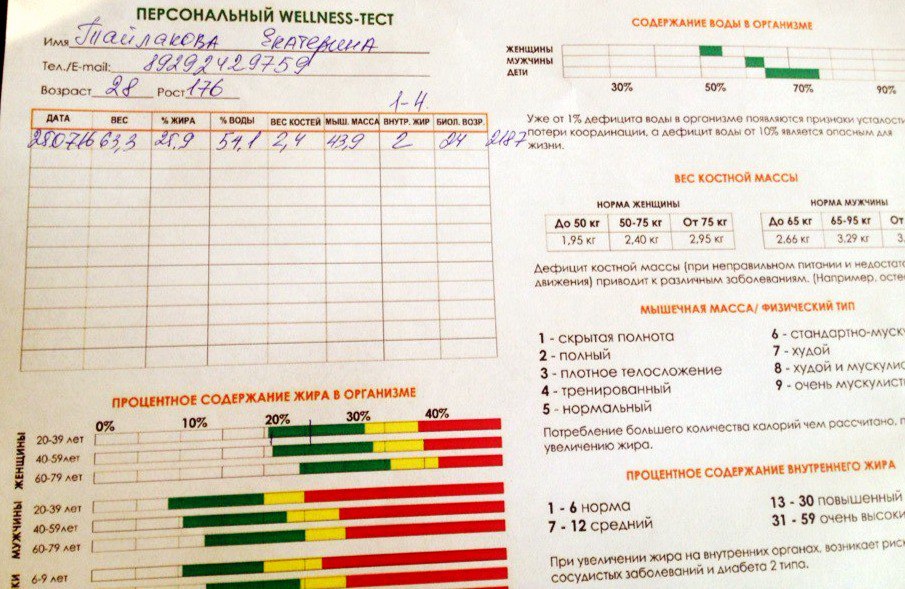 ПЕРСОНАЛЬНЫЙ WELLNESS-ТЕСТ
Имя Тайлакова Екатерина
Тел./E-mail: 89292429759
Возраст 28 Рост 176
1-4
ДАТА ВЕС % ЖИРА % ВОДЫ ВЕС КОСТЕЙ МЫШ. МАССА ВНУТР. ЖИР БИОЛ. ВОЗР.
280716 63,3 25,9 51,1 2,4 43,9 2 24 2187
ПРОЦЕНТНОЕ СОДЕРЖАНИЕ ЖИРА В ОРГАНИЗМЕ
0% 10% 20% 30% 40%
ЖЕНЩИНЫ
20-39 лет
40-59лет
60-79 лет
МУЖЧИНЫ
20-39 лет
40-59лет
60-79 лет
КИ
6-9 лет
СОДЕРЖАНИЕ ВОДЫ В ОРГАНИЗМЕ
ЖЕНЩИНЫ
МУЖЧИНЫ
ДЕТИ
30% 50% 70% 90%
Уже от 1% дефицита воды в организме появляются признаки усталости
потери координации, а дефицит воды от 10% является опасным для
жизни.
ВЕС КОСТНОЙ МАССЫ
НОРМА ЖЕНЩИНЫ НОРМА МУЖЧИНЫ
До 50 кг 50-75 кг От 75 кг До 65 кг 65-95 кг От
1,95 кг 2,40 кг 2,95 кг 2.66 кг 3.29 кг 3.
Дефицит костной массы (при неправильном питании и недостат
движения) приводит к различным заболеваниям. (Например, осте
МЫШЕЧНАЯ МАССА/ ФИЗИЧЕСКИЙ ТИП
1 - скрытая полнота 6 - стандартно-муск
2 - полный 7 - худой
3 - плотное телосложение 8 - худой и мускулис
4 - тренированный 9 - очень мускулист
5 - нормальный
Потребление большего количества калорий чем рассчитано, п
увеличению жира.
ПРОЦЕНТНОЕ СОДЕРЖАНИЕ ВНУТРЕННЕГО ЖИРА
1 - 6 норма 13 - 30 повышенный
7 - 12 средний 31 - 59 очень высоки
При увеличении жира на внутренних органах, возникает рис
сосудистых заболеваний и диабета 2 типа.